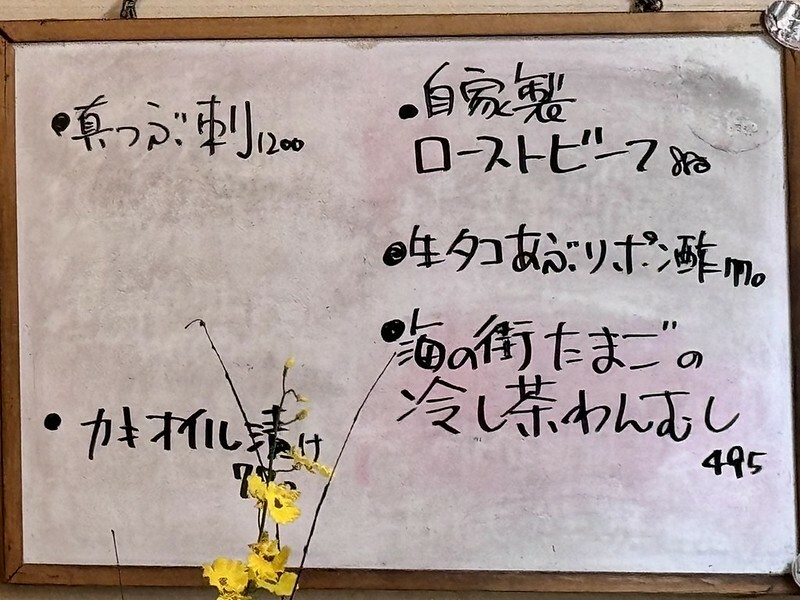 ・自家製
ローストビーフ
・生タコあぶりポン酢
・海の街たまごの
冷し茶わんむし
495
・真つぶ刺1200
・カキオイル漬け